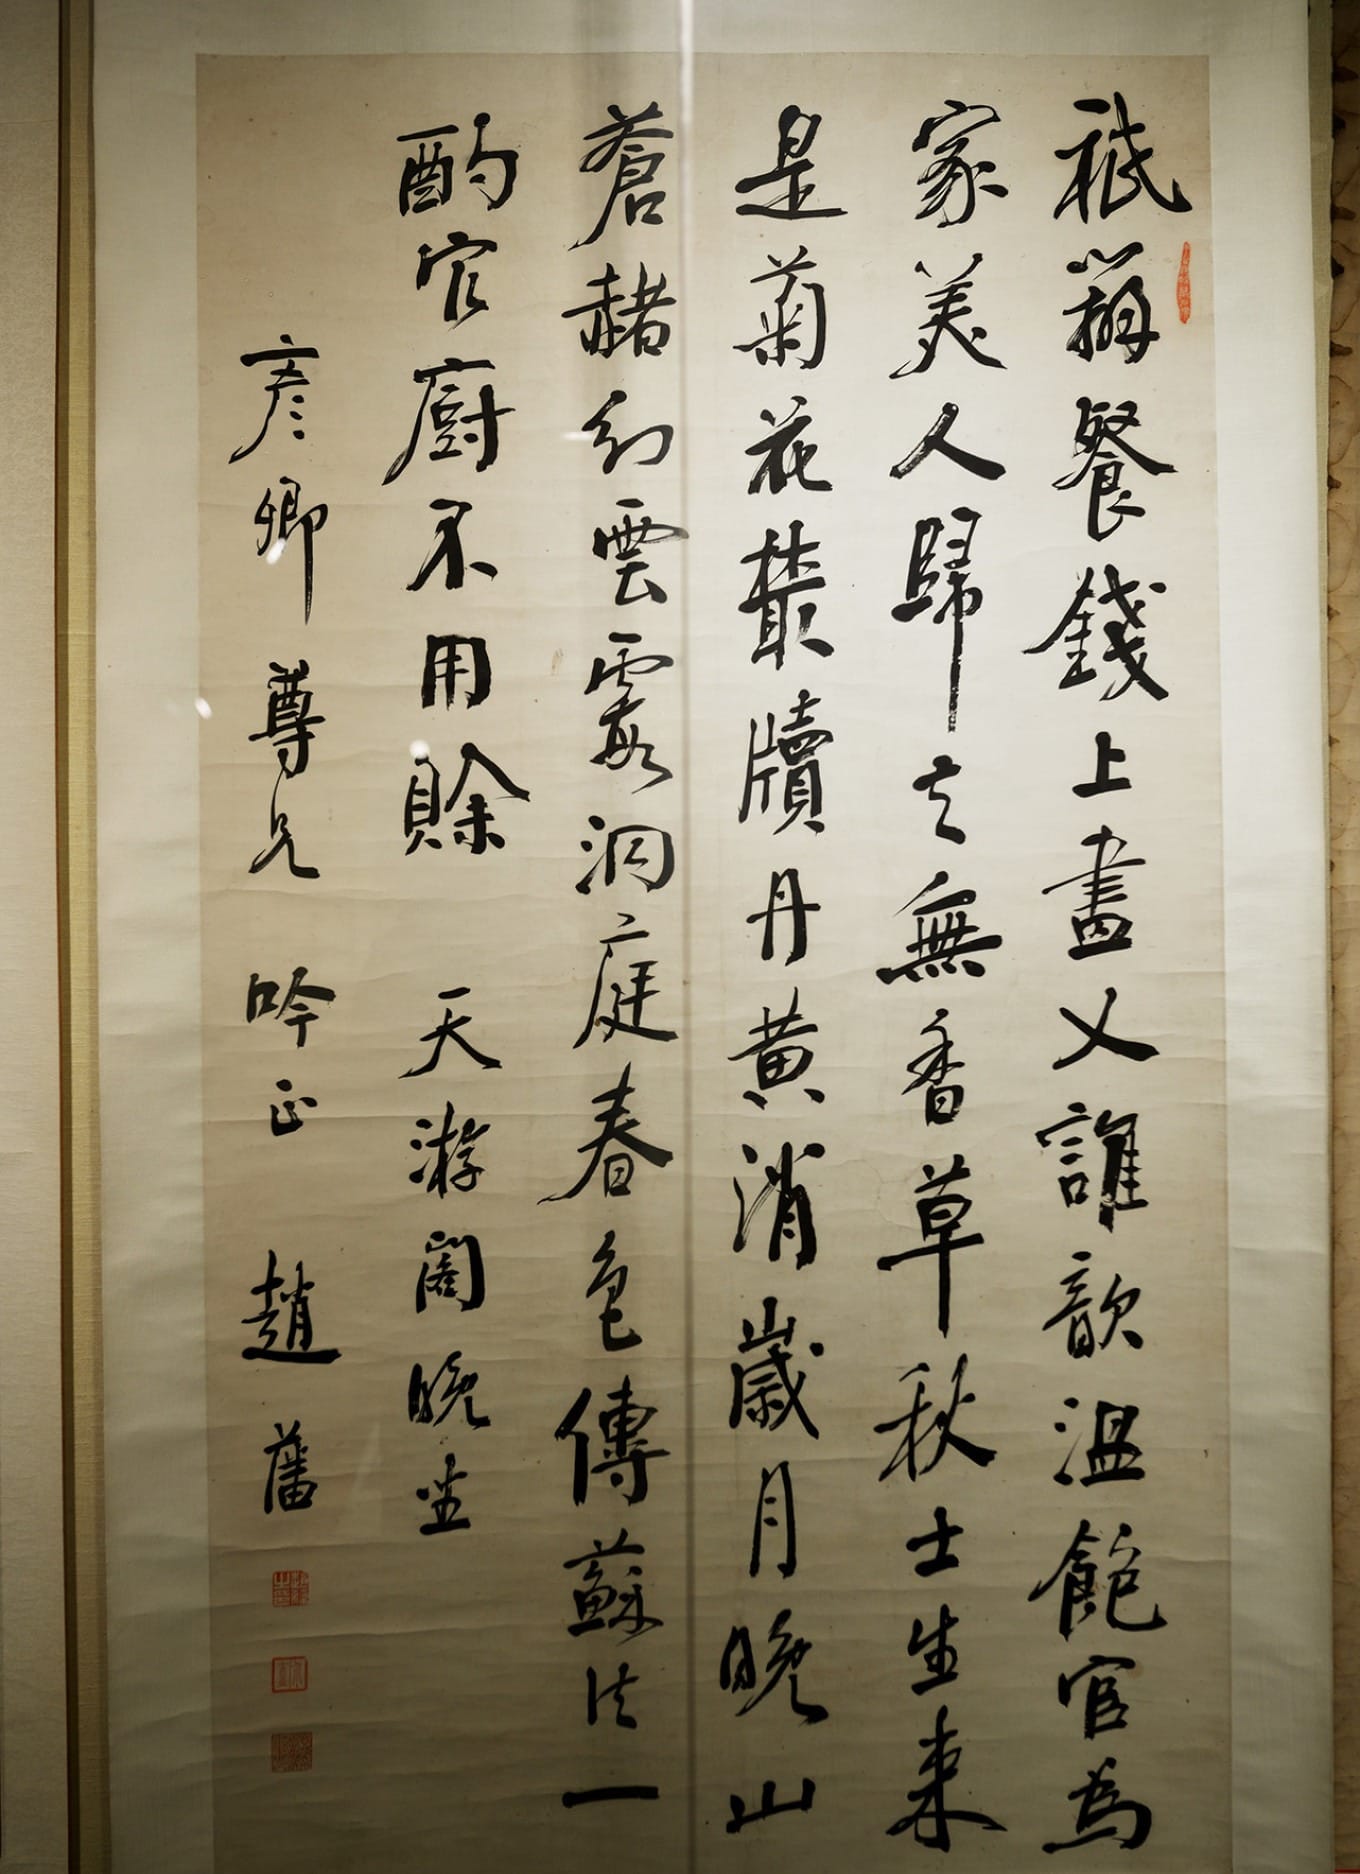 祇餐錢上畫乂誰歆溫飽官為
家美人歸去無香草秋士生來
是菊花叢牘丹黃消歲月晚山
蒼赭幻雲霞洞庭春色傳蘇法一
酌官廚不用賒 天游閣晚坐
彥卿尊兄 吟正 趙藩